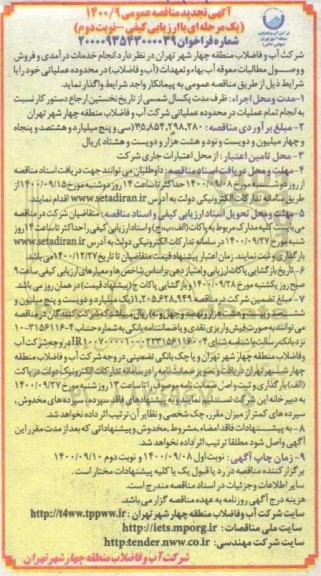 آگهی تجدید مناقصه عمومی ۱۴۰۰/۹
(یک مرحله‌ای با ارزیابی کیفی – نوبت دوم)
شماره فراخوان ۲۰۰۰۰۹۳۵۴۳۰۰۰۰۳۹
شرکت آب و فاضلاب منطقه چهار شهر تهران در نظر دارد انجام خدمات درآمدی و فروش
و وصول مطالبات معوقه آب بها و تعهدات (آب و فاضلاب) در محدوده عملیاتی خود را با
شرایط ذیل از طریق مناقصه عمومی به پیمانکار واجد شرایط واگذار نماید.
۱- مدت و محل اجراء: ظرف مدت یکسال شمسی از تاریخ نخستین ارجاع دستور کار نسبت
به انجام تمام عملیات در محدوده عملیاتی شرکت آب و فاضلاب منطقه چهار شهر تهران
۲- مبلغ برآوردی مناقصه: ۳۵,۸۵۴,۲۹۸,۲۸۰ (سی و پنج میلیارد و هشتصد و پنجاه
و چهار میلیون و دویست و نود و هشت هزار و دویست و هشتاد) ریال
۳- محل تامین اعتبار: از محل اعتبارات جاری شرکت
۴- مهلت و محل دریافت اسناد مناقصه: داوطلبان می توانند جهت دریافت اسناد مناقصه
از روز دوشنبه مورخ ۱۴۰۰/۰۹/۰۸ حداکثر تا ساعت ۱۴ روز دوشنبه مورخ ۱۴۰۰/۰۹/۱۵ از
طریق سامانه تدارکات الکترونیکی دولت به آدرس www.setadiran.ir اقدام نمایند.
۵- مهلت و محل تحویل اسناد ارزیابی کیفی و اسناد مناقصه: متقاضیان شرکت در مناقصه
می بایست کلیه مدارک مربوط به پاکات (الف، ب، ج) و اسناد ارزیابی کیفی را حداکثر تا ساعت ۱۴ روز
شنبه مورخ ۱۴۰۰/۰۹/۲۷ در سامانه تدارکات الکترونیکی دولت به آدرس www.setadiran.ir
بارگذاری و ثبت نمایند. زمان اعتبار پیشنهاد قیمت متقاضیان تا تاریخ ۱۴۰۰/۱۲/۲۷ می باشد.
۶- تاریخ بازگشایی پاکات ارزیابی و امتیازدهی بر اساس شاخص ها و معیارهای ارزیابی کیفی ساعت ۹
صبح روز یکشنبه مورخ ۱۴۰۰/۰۹/۲۸ و بازگشایی پاکات ج (پیشنهاد قیمت) در همان روز می باشد.
۷- مبلغ تضمین شرکت در مناقصه ۱,۲۰۵,۶۲۸,۹۴۹ (یک میلیارد و دویست و پنج میلیون و
ششصد و بیست و هشت هزار و نهصد و چهل و نه) ریال میباشد که شرکت کنندگان در مناقصه
می توانند به صورت فیش واریزی نقدی و یا ضمانتنامه بانکی به شماره حساب
نزد بانک رسالت با شناسه شبای در وجه شرکت آب
و فاضلاب منطقه چهار شهر تهران و یا چک بانکی تضمینی در وجه شرکت آب و فاضلاب منطقه
چهار شهر تهران دریافت و تصویر ضمانت نامه را در سامانه تدارکات الکترونیک دولت در پاکت
(الف) بارگذاری و ثبت و اصل ضمانت نامه موصوف را تا ساعت ۱۳ روز شنبه مورخ ۱۴۰۰/۰۹/۲۷
به دبیرخانه این شرکت تسلیم نمایند و به پیشنهادهای فاقد سپرده، سپرده های مخدوش،
سپرده های کمتر از میزان مقرر، چک شخصی و نظایر آن ترتیب اثر داده نخواهد شد.
۸- به پیشنهادات فاقد امضاء، مشروط، مخدوش و پیشنهاداتی که بعد از مدت مقرر این
آگهی واصل شود مطلقا ترتیب اثر داده نخواهد شد.
۹- زمان چاپ آگهی: نوبت اول ۱۴۰۰/۰۹/۰۸ و نوبت دوم ۱۴۰۰/۰۹/۱۰
برگزار کننده مناقصه در رد یا قبول یک یا کلیه پیشنهادات مختار است.
سایر اطلاعات و جزئیات در اسناد مناقصه مندرج است.
هزینه درج آگهی روزنامه به عهده مناقصه گزار می باشد.
سایت شرکت آب و فاضلاب منطقه چهار شهر تهران: http://t4ww.tppww.ir
سایت ملی مناقصات: http://iets.mporg.ir
سایت شرکت مهندسی: http:tender.nww.co.ir
شرکت آب و فاضلاب منطقه چهار شهر تهران